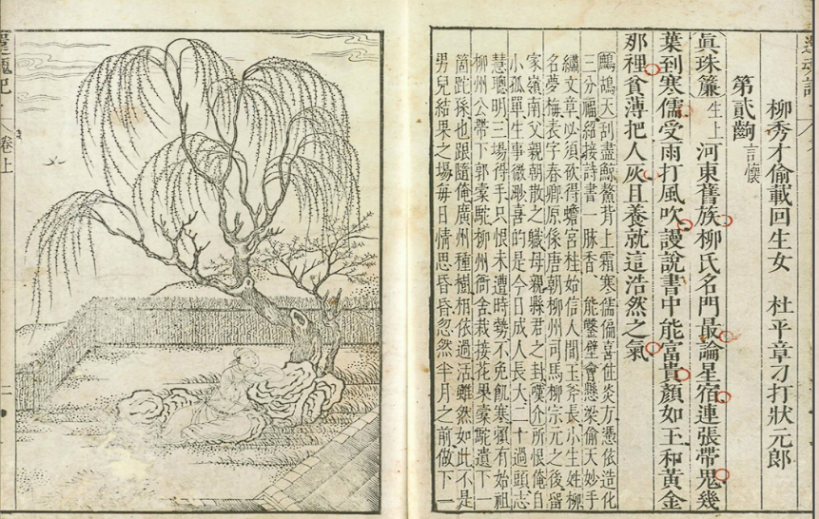 柳秀才偷載回生女 杜平章刁打狀元郎
第貳齣 言懷
眞珠簾 生上 河東舊族柳氏名門最論星宿連張帶鬼幾
葉到寒儒受雨打風吹謾說書中能富貴顏如玉和黃金
那裡貧薄把人灰且養就這浩然之氣
鷓鴣天刮盡鯨鰲背上霜寒儒偏喜住炎方憑依造化
三分福紹接詩書一脉香 能鑿壁會懸梁偷天妙手
繡文章必須砍得蟾宮桂始信人間玉斧長小生姓柳
名夢梅表字春卿原係唐朝柳州司馬柳宗元之後留
家嶺南父親朝散之職母親縣君之封嘆介所恨俺自
小孤單生事微渺喜的是今日成人長大二十過頭志
慧聰明三場得手只恨未遭時勢不免飢寒賴有始祖
柳州公帶下郭橐駝柳州衙舍栽接花果橐駝遺下一
箇駝孫也跟隨俺廣州種樹相依過活雖然如此不是
男兒結果之場每日情思昏昏忽然半月之前做下一
還魂記 卷上 二